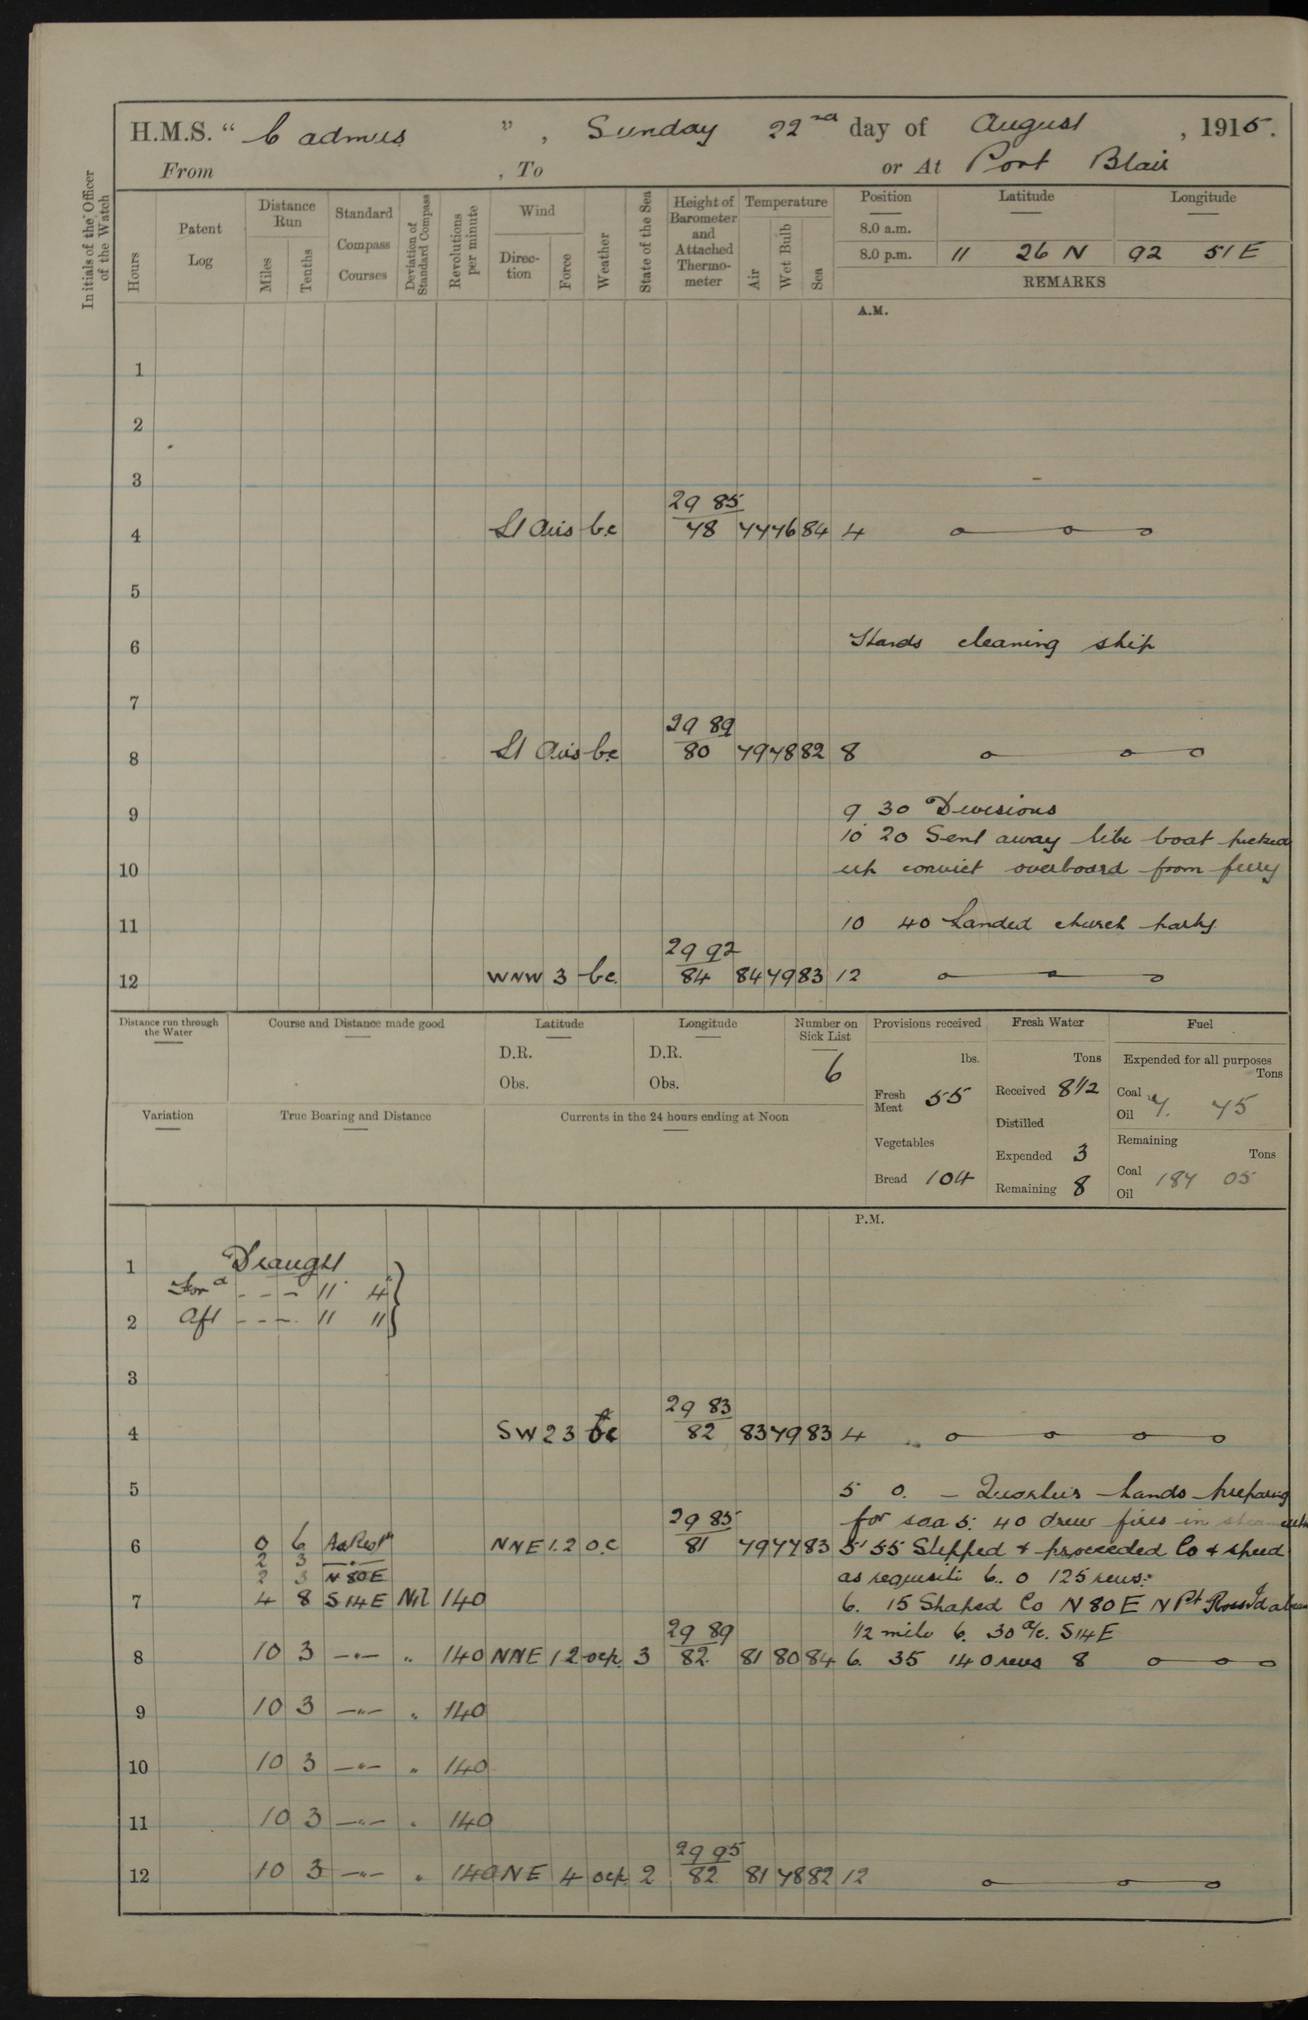 H.M.S. “ Cadmus ” , Sunday 22nd day of August , 1915.
From , To or At Port Blair
Initials of the Officer of the Watch
Hours
Patent Log
Distance Run
Miles
Tenths
Standard Compass Courses
Deviation of Standard Compass
Revolutions per minute
Wind
Direction
Force
Weather
State of the Sea
Height of Barometer and Attached Thermometer
Temperature
Air
Wet Bulb
Sea
Position Latitude Longitude
8.0 a.m.
8.0 p.m. 11 26 N 92 51 E
REMARKS
A.M.
1
2
3
29 85
4 Lt Airs bc 78 77 76 84 4
5
6 Hands cleaning ship
7
29 89
8 Lt Airs bc 80 79 78 82 8
9 9 30 Divisions
10 20 Sent away life boat picked
10 up convict overboard from ferry
11 10 40 Landed church party
29 92
12 WNW 3 bc 84 84 79 83 12
Distance run through the Water
Course and Distance made good
Latitude
D.R.
Obs.
Longitude
D.R.
Obs.
Number on Sick List
6
Provisions received
lbs.
Fresh Meat 55
Vegetables
Bread 104
Fresh Water
Tons
Received 8 1/2
Distilled
Expended 3
Remaining 8
Fuel
Expended for all purposes
Tons
Coal 7. 75
Oil
Remaining
Tons
Coal 187 05
Oil
Variation
True Bearing and Distance
Currents in the 24 hours ending at Noon
P.M.
1 Draught
Ford - - - 11' 4"
2 Aft - - - 11 11
3
29 83
4 SW 2 3 bc 82 83 79 83 4
5 5 0. - Quarters hands preparing
29 85 for sea 5. 40 drew fires in
6 0 6 As Reqte NNE 1.2 o.c 81 79 77 83 5 55 Slipped & proceeded Co & speed
2 3 —"—
2 3 N 80 E as requisite 6. 0 125 revs:
7 4 8 S14E Nil 140 6. 15 Shaped Co N 80 E N Pt Ross Id abeam
29 89 1/2 mile 6. 30 a/c. S14E
8 10 3 —"— " 140 NNE 1 2 ocp. 3 82. 81 80 84 6. 35 140 revs 8
9 10 3 —"— " 140
10 10 3 —"— " 140
11 10 3 —"— " 140
29 95
12 10 3 —"— " 140 NE 4 ocp 2 82 81 78 82 12